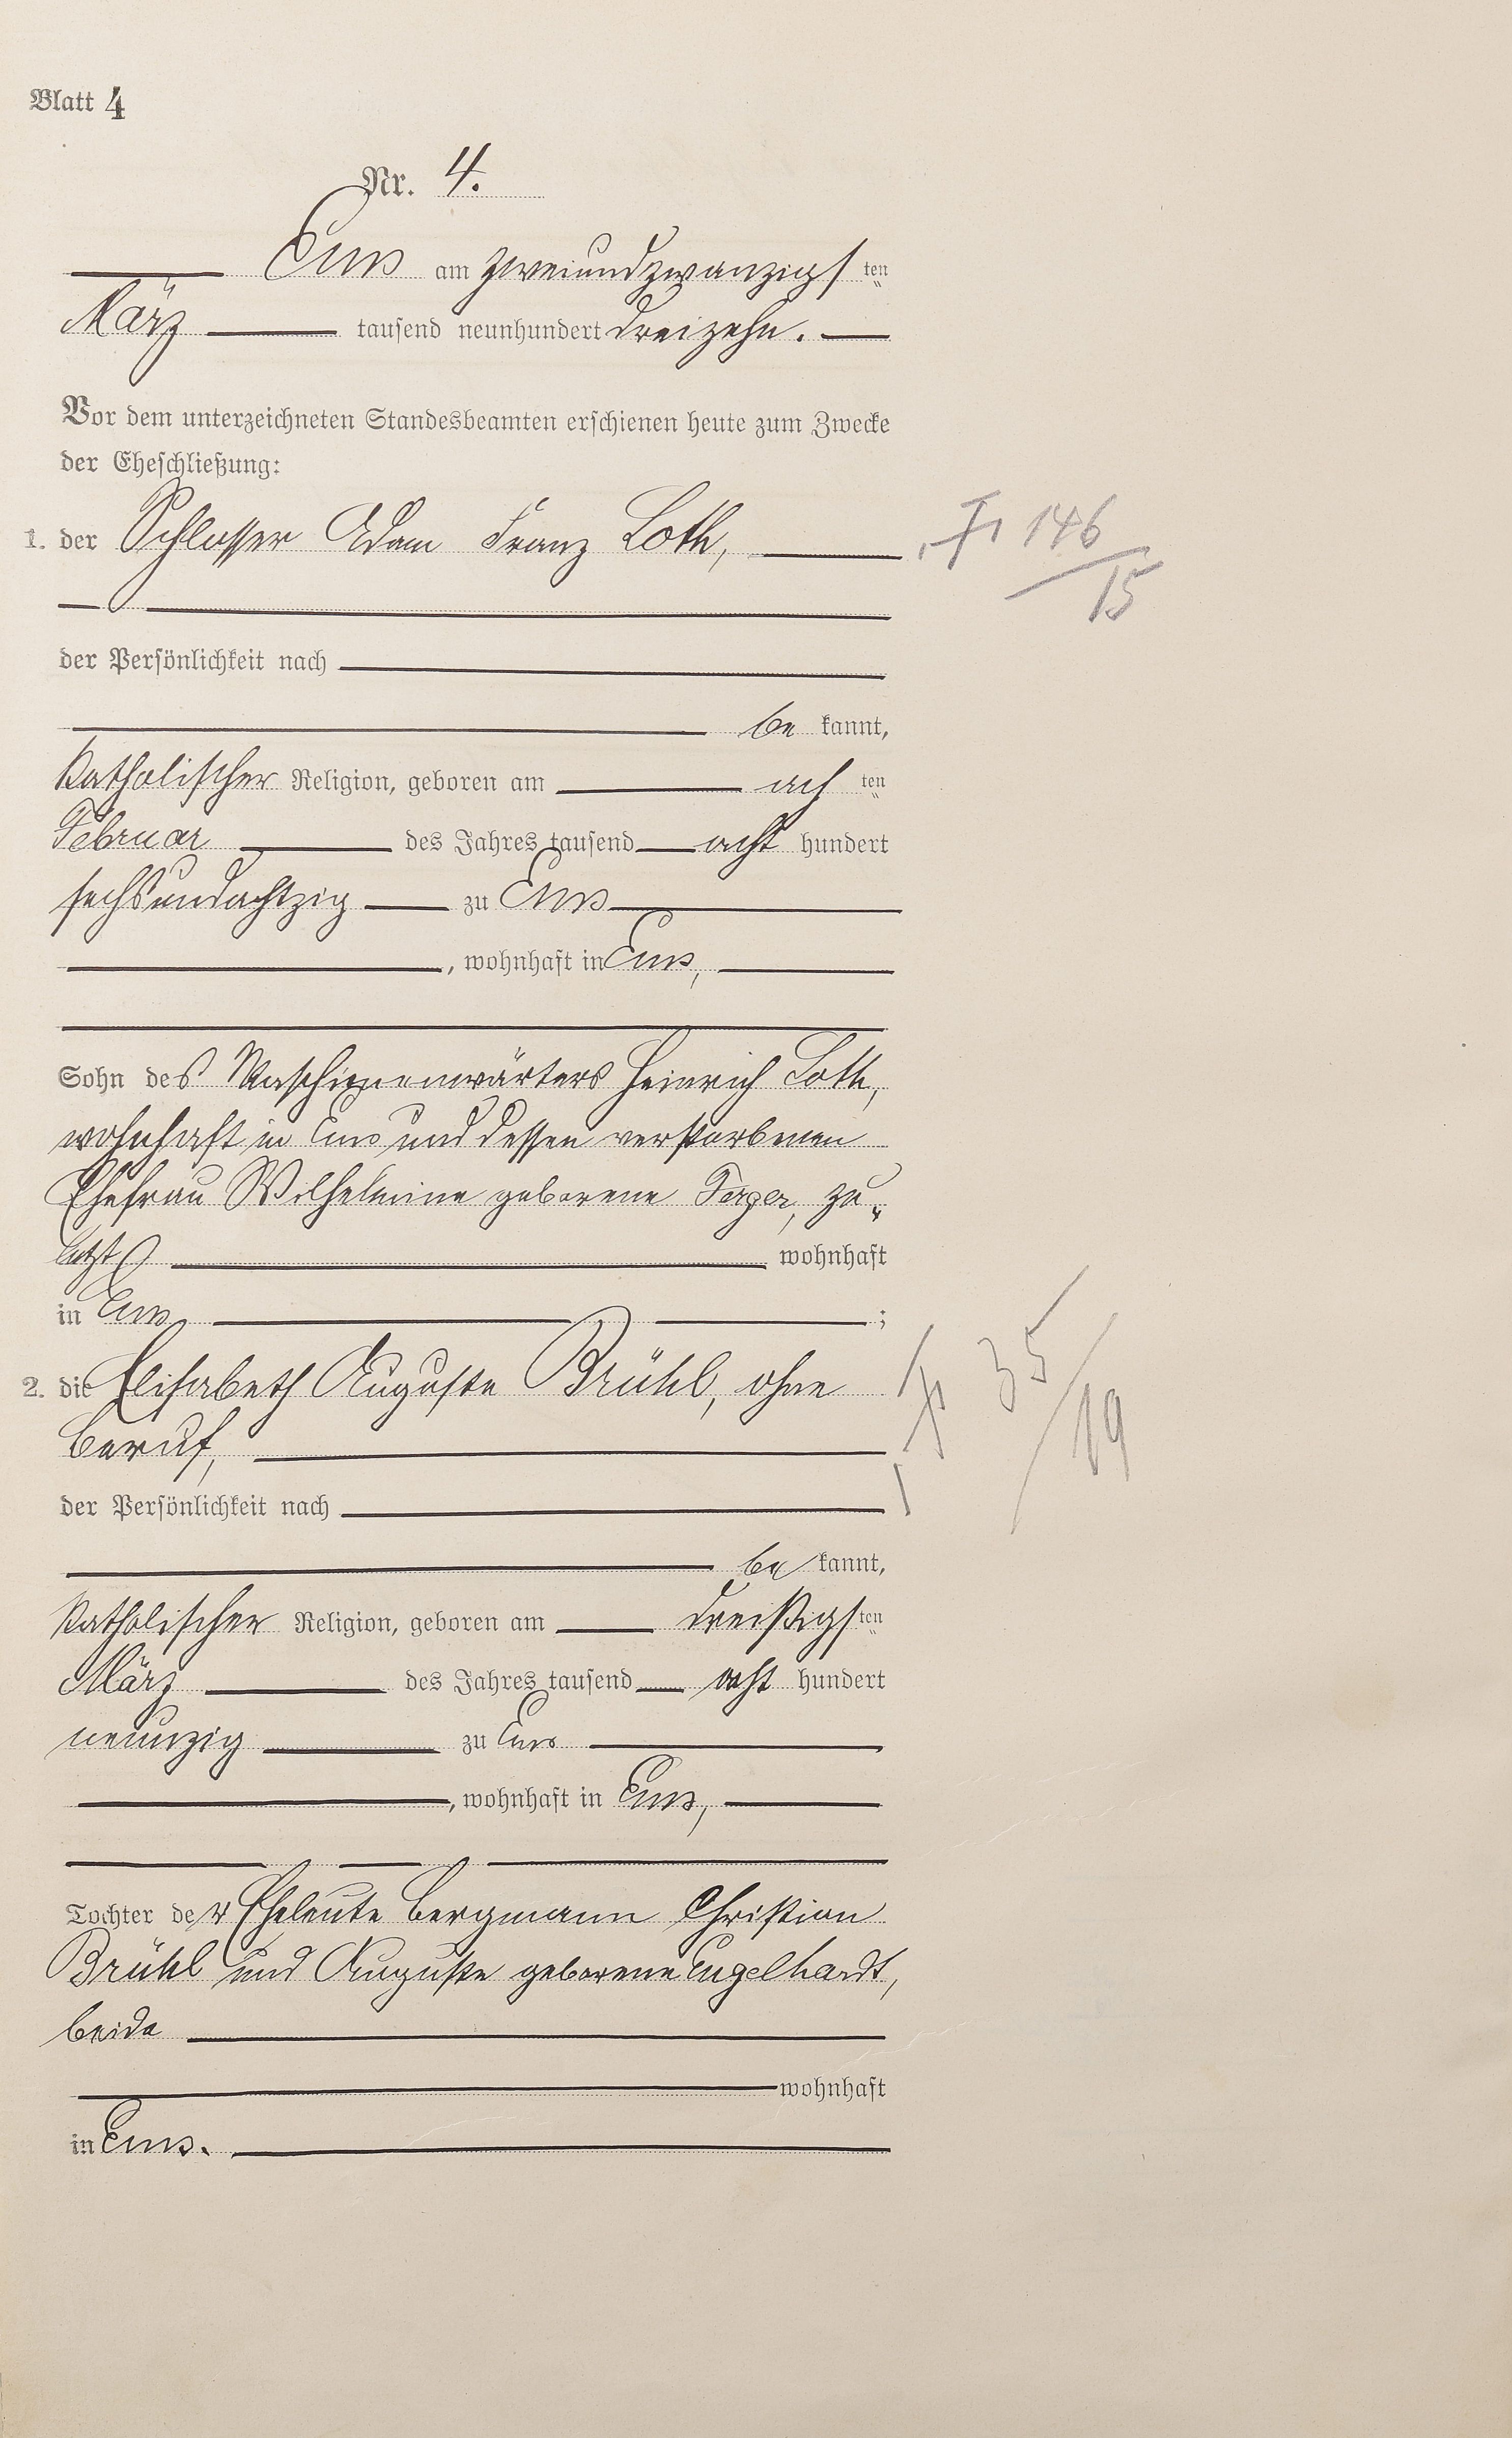 Blatt 4
Nr. 4.
Ems am zweiundzwanzigsten
März tausend neunhundert dreizehn.
Vor dem unterzeichneten Standesbeamten erschienen heute zum Zwecke
der Eheschließung:
1. der Schlosser Adam Franz Loth,
146
15
der Persönlichkeit nach
be kannt,
katholischer Religion, geboren am ach ten
Februar des Jahres tausend acht hundert
sechsundachtzig zu Ems
, wohnhaft in Ems,
Sohn des Maschienenwärters Heinrich Loth,
wohnhaft in Ems und dessen verstorbenen
Ehefrau Wilhelmine geborene zu-
letzt wohnhaft
in Ems ;
2. die Elisabeth Auguste Brühl, ohne
Beruf,
35
19
der Persönlichkeit nach
be kannt,
katholischer Religion, geboren am dreißigsten
März des Jahres tausend acht hundert
neunzig zu Ems
, wohnhaft in Ems,
Tochter der Eheleute Bergmann Christian
Brühl und Auguste geborene Engelhardt,
beide
wohnhaft
in Ems.